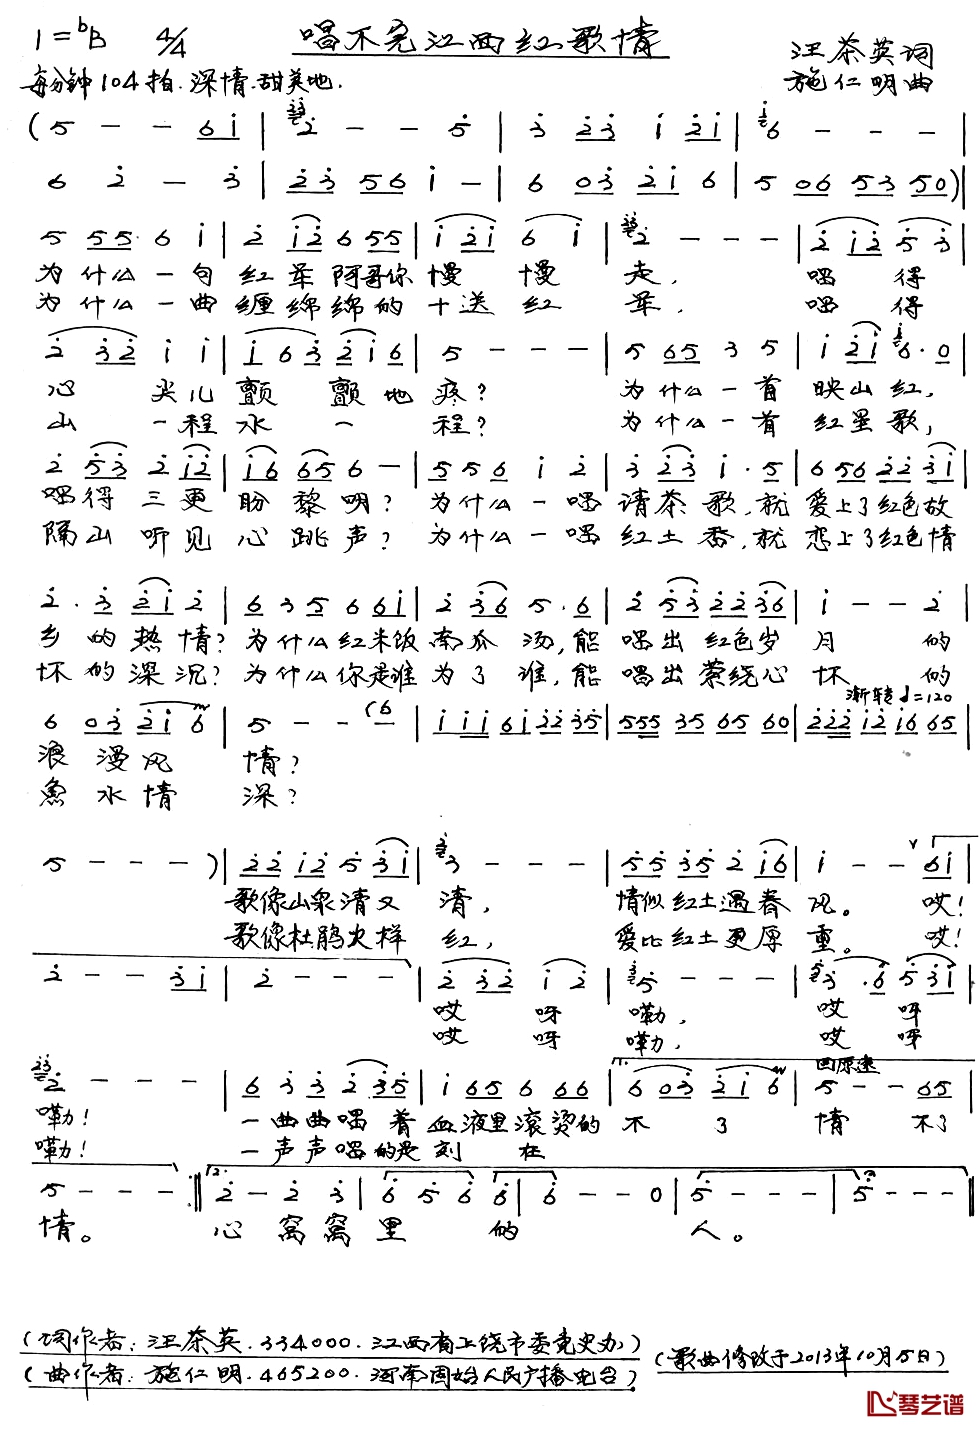 唱不完江西红歌情
1=♭B 4/4
汪茶英词
每分钟104拍.深情.甜美地.
施仁明曲
(5 - - 6i | 2 - - 5 | 3 23 i 2i | 6 - - - |
6 2 - 3 | 23 56 i - | 6 03 2i 6 | 5 06 53 50)|
5 55. 6 i | 2 i2 6 55 | i 2i 6 i | 2 - - - | 2 i2 5 3 |
为什么一句红军阿哥你慢慢走,唱得
为什么一曲缠绵绵的十送红军,唱得
2 32 i i | i 6 3 2 i 6 | 5 - - - | 5 65 3 5 | i 2i 6. 0 |
心尖儿颤颤地疼?为什么一首映山红,
山一程水一程?为什么一首红星歌,
2 53 2 i2 | i6 65 6 - | 5 56 i 2 | 3 23 i. 5 | 6 56 22 3i |
唱得三更盼黎明?为什么一唱请茶歌,就爱上了红色故
隔山听见心跳声?为什么一唱红土香,就恋上了红色情
2. 3 2i 2 | 6 3 5 6 6i | 2 36 5. 6 | 2 53 22 36 | i - - 2 |
乡的热情?为什么红米饭南瓜汤,能唱出红色岁月的
怀的深沉?为什么你是谁为了谁,能唱出萦绕心怀的
渐转♩=120
6 03 2i 6 | 5 - - (6 | i iii 6i 22 35 | 555 35 65 60 | 222 i2 i6 65 |
浪漫风情?
鱼水情深?
5 - - - ) | 22 i2 5 3i | 3 - - - | 55 35 2 i6 | i - - 6i |
歌像山泉清又清,情似红土遇春风。哎!
歌像杜鹃火样红,爱比红土更厚重。哎!
2 - - 3i | 2 - - - | 2 32 i 2 | 5 - - - | 3. 6 5 3i |
哎呀嘞,哎呀
哎呀嘞,哎呀
回原速
2 - - - | 6 3 3 2 35 | i 65 6 66 | 1. 6 03 2i 6 | 5 - - 65 |
嘞!一曲曲唱着血液里滚烫的不了情不了
嘞!一声声唱的是刻在
5 - - - :‖ 2. 2 - 2 3 | 6 5 6 6 | 6 - - 0 | 5 - - - | 5 - - - ‖
情。心窝窝里的人。
(词作者:汪茶英.334000.江西省上饶市委党史办)
(曲作者:施仁明.465200.河南固始人民广播电台)
(歌曲修改于2013年10月15日)
琴艺谱